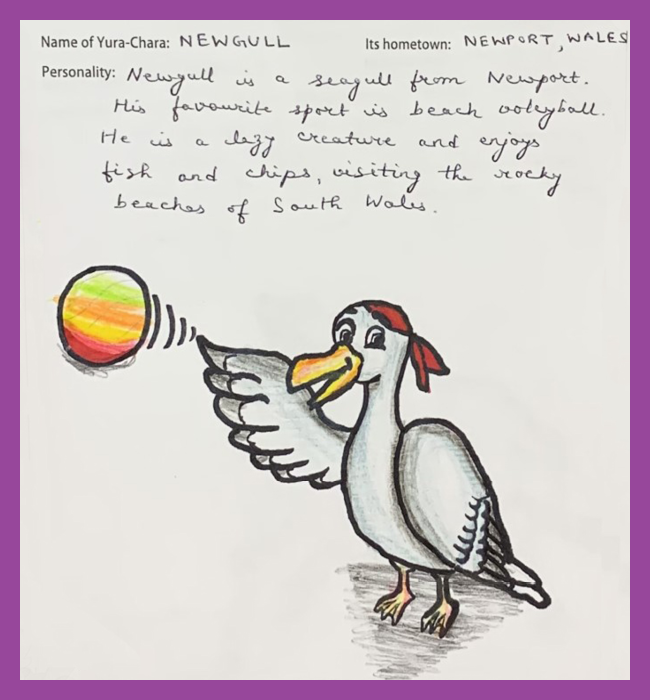 Name of Yura-Chara: NEWGULL
Its hometown: NEWPORT, WALES
Personality: Newgull is a seagull from Newport.
His favourite sport is beach voleyball.
He is a lazy creature and enjoys
fish and chips, visiting the rocky
beaches of South Wales.